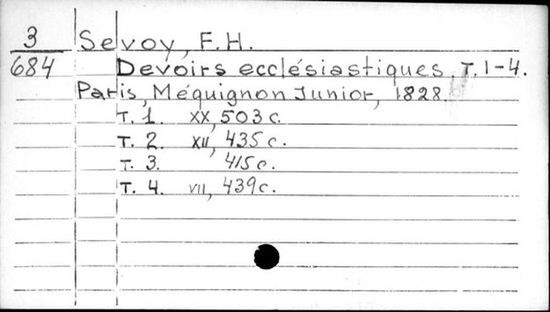 3 Sevoy, F.H.
684 Devoirs ecclésiastiques. T. 1-4.
Paris, Méquignon Junior, 1828.
T. 1. XX, 503 c.
T. 2. XII, 435 c.
T. 3. 415 c.
T. 4. VII, 439 c.